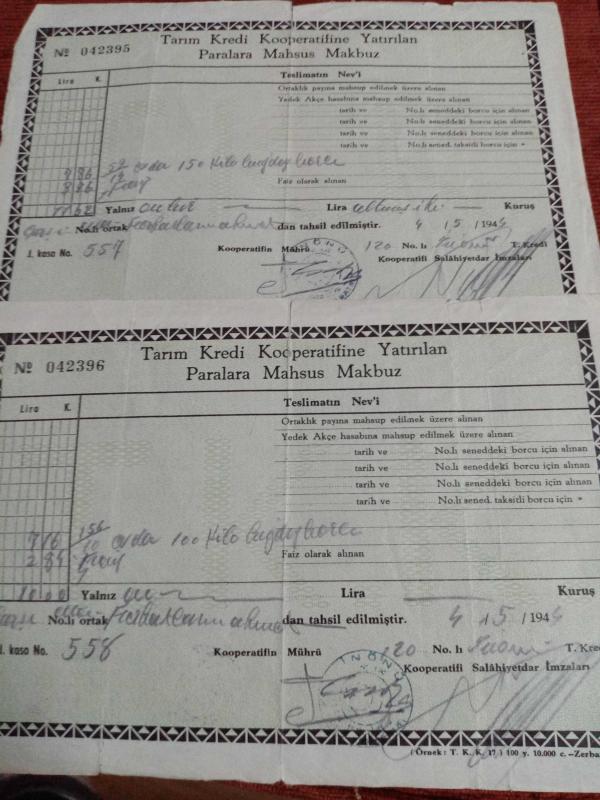 Tarım Kredi Kooperatifine Yatırılan
Nº 042395 Paralara Mahsus Makbuz
Lira K. Teslimatın Nev'i
Ortaklık payına mahsup edilmek üzere alınan
Yedek Akçe hasabına mahsup edilmek üzere alınan
tarih ve No.lı seneddeki borcu için alınan
tarih ve No.lı seneddeki borcu için alınan
tarih ve No.lı seneddeki borcu için alınan
tarih ve No.lı sened. taksidli borcu için »
150 Kilo buğday borcu
8 86 Faiz olarak alınan
Yalnız Lira Kuruş
No.lı ortak dan tahsil edilmiştir. 4 / 5 / 194
J. kasa No. 557 Kooperatifin Mührü 120 No. lı T. Kredi
İNÖNÜ Kooperatifi Salâhiyetdar İmzaları
Tarım Kredi Kooperatifine Yatırılan
Nº 042396 Paralara Mahsus Makbuz
Lira K. Teslimatın Nev'i
Ortaklık payına mahsup edilmek üzere alınan
Yedek Akçe hasabına mahsup edilmek üzere alınan
tarih ve No.lı seneddeki borcu için alınan
tarih ve No.lı seneddeki borcu için alınan
tarih ve No.lı seneddeki borcu için alınan
tarih ve No.lı sened. taksidli borcu için »
7 16 100 Kilo buğday borcu
2 84 Faiz olarak alınan
10 00 Yalnız on Lira Kuruş
No.lı ortak dan tahsil edilmiştir. 4 / 5 / 194
J. kasa No. 558 Kooperatifin Mührü 120 No. lı T. Kre
İNÖNÜ Kooperatifi Salâhiyetdar İmzaları
(Örnek: T. K. K. 17) 100 y. 10.000 c. —Zerba